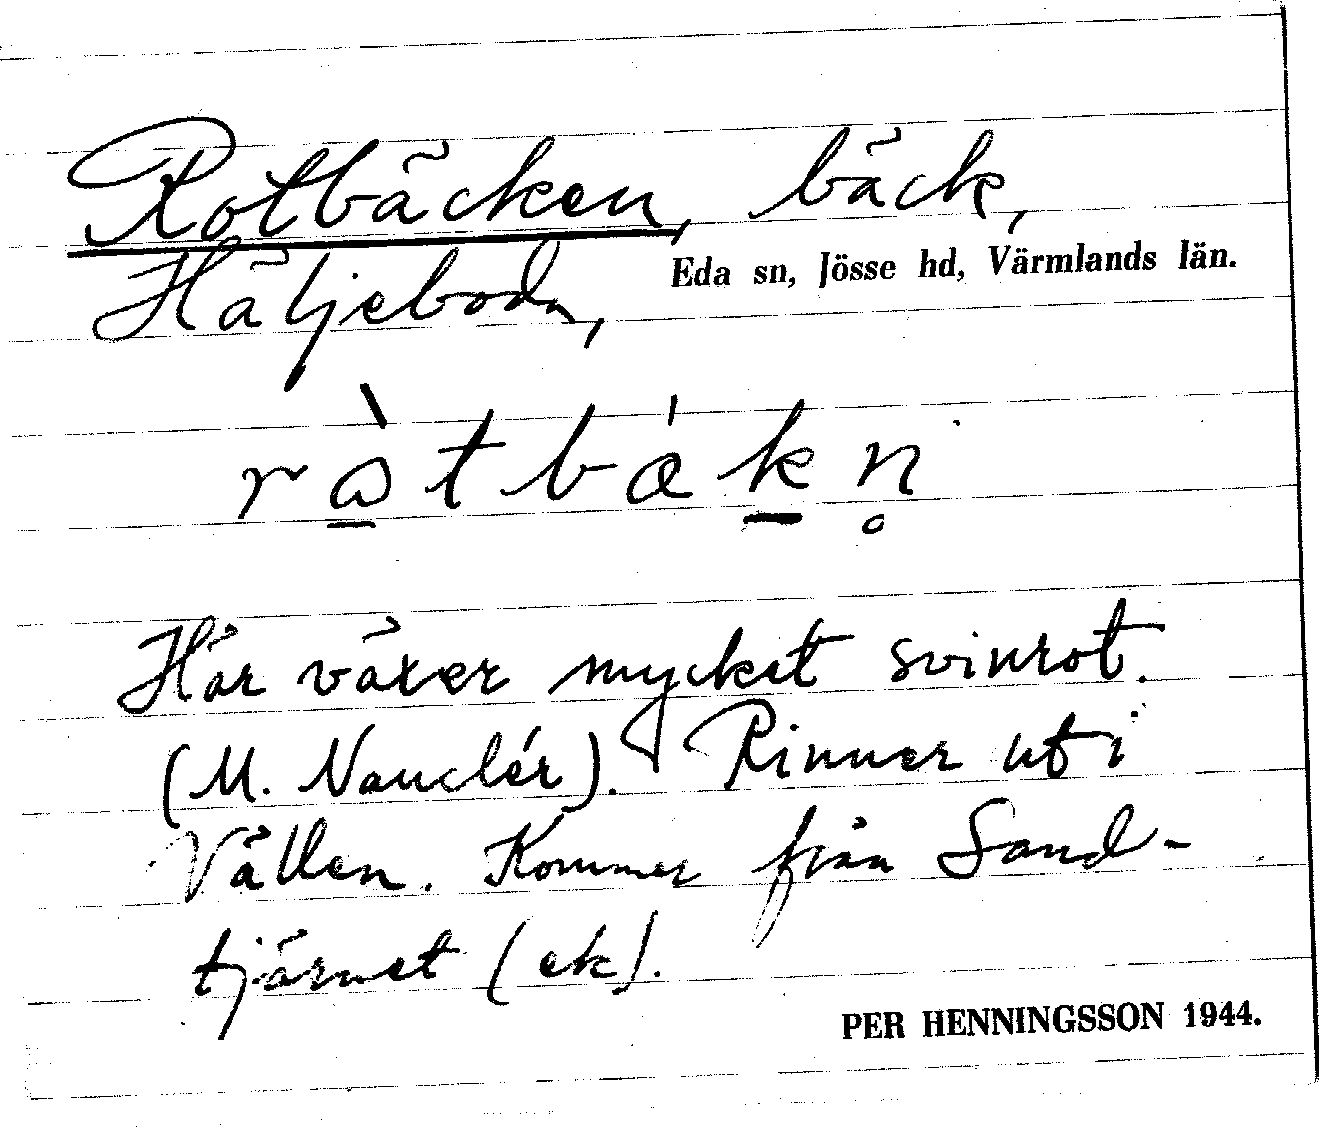 Rotbäcken, bäck,
Häljeboda, Eda sn, Jösse hd, Värmlands län.
Här växer mycket svinrot.
(M. Nauclér). Rinner ut i
Vällen. Kommer från Sand-
tjärnet (ek).
PER HENNINGSSON 1944.